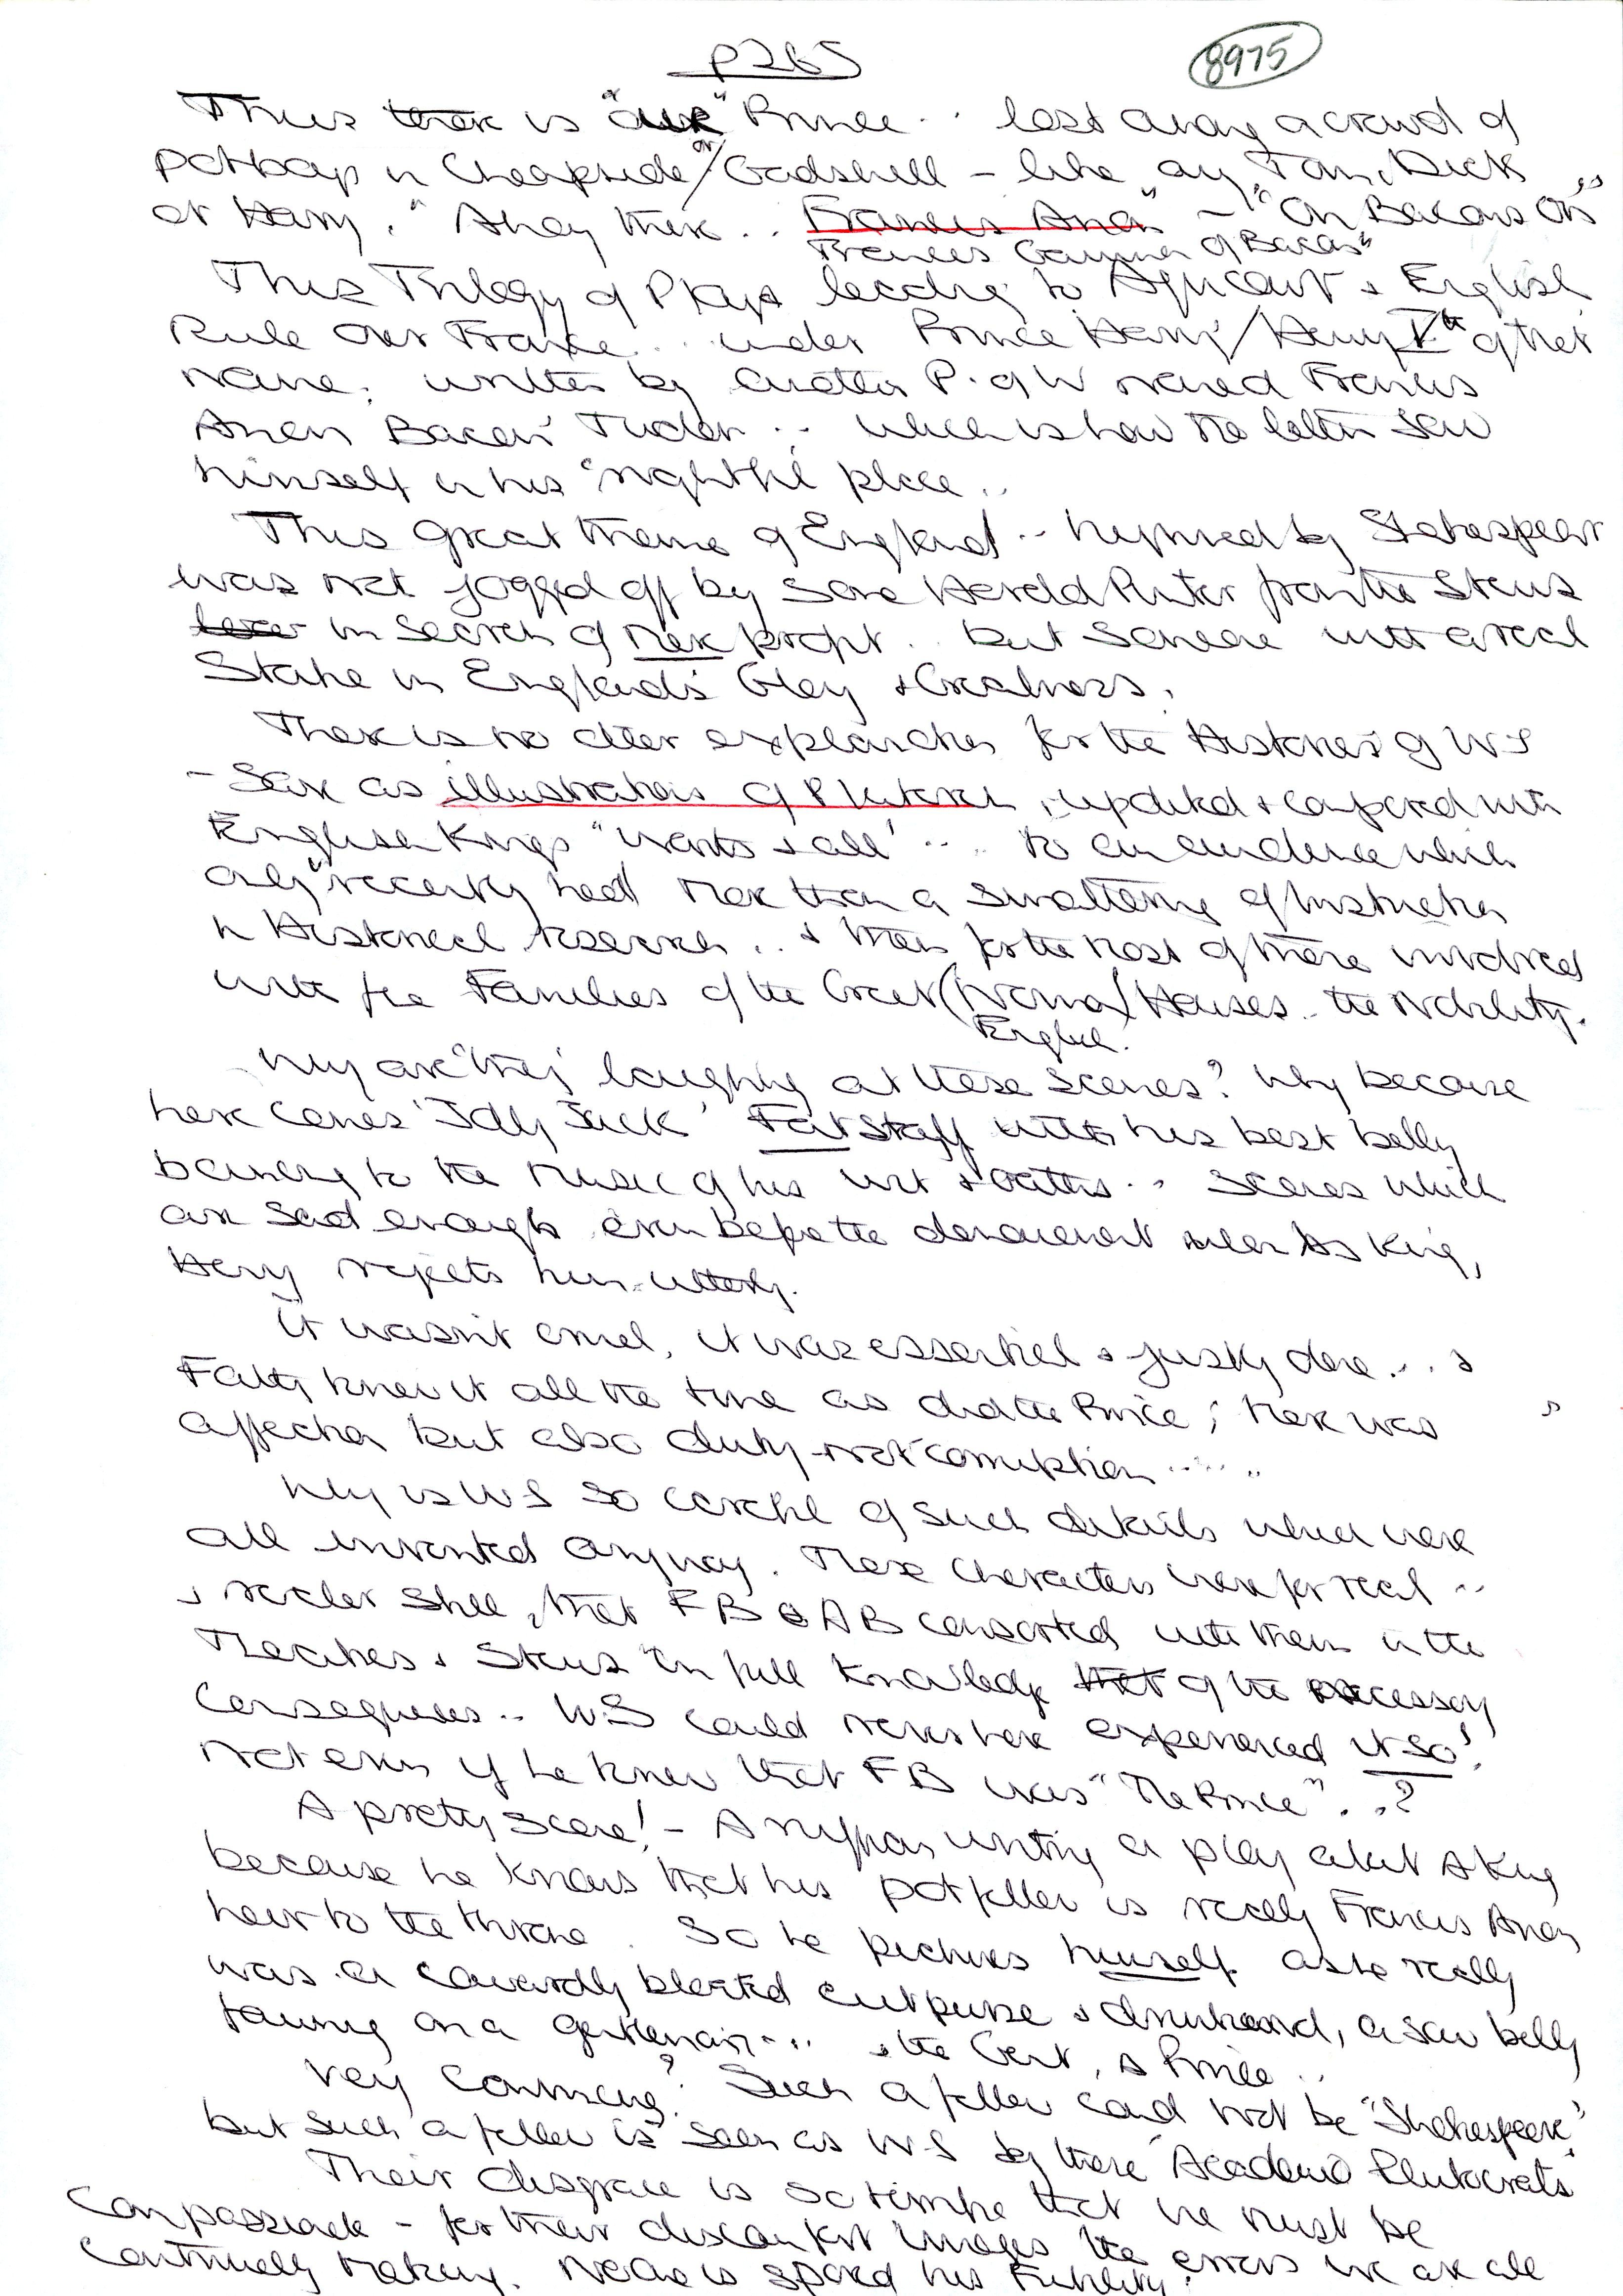 P265
8975
Thus there is "our" Prince .. lost among a crowd of
potboys in Cheapside / or Gadshell - like any Tom, Dick
or Harry. "Ahoy there .. Francis Anon" - "On Bacons On"
Frances Gammon of Bacon"
This Trilogy of Plays leading to Agincourt & English
Rule over France .. under Prince Harry / Henry Vth of that
name; written by another P. of W named Francis
Anon Bacon Tudor .. which is how the latter saw
himself in his "rightful place ..
This great theme of England .. hymned by Shakespear
was not jogged off by some Harold Pinter from the Stews
in search of mere profit .. but someone with a real
Stake in England's Glory & Greatness.
There is no other explanation for the Histories of WS
- Save as illustrations of Plutarch, updated & compared with
English Kings "warts & all" ... to an audience which
only "recently had" more than a smattering of Instruction
in Historical research .. & then for the most of them involved
with the Families of the Great (Norman) Houses .. the Nobility.
English.
Why are "they" laughing at these scenes? Why because
here comes 'Jolly Jack' Falstaff with his best belly
bouncing to the Music of his wit & oaths .. Scenes which
are sad enough even before the denouement when as King,
Henry rejects him utterly.
It wasn't cruel, it was essential & justly done ... &
Fatty knew it all the time as did the Prince; there was
affection but also duty - not corruption .....
Why is WS so careful of such details which were
all invented anyway. These Characters were for real ..
& realer still, that FB & AB consorted with them in the
Theatres & Stews "in full knowledge that of the necessary
Consequences .. W.S could never have experienced it so!
Not even if he knew that FB was "The Prince" ..?
A pretty scene! - A writing a play about a King
because he knows that his potfellow is really Francis Anon
heir to the throne. So he pictures himself as he really
was - a cowardly bloated cutpurse & drunkard, a sow belly
fawning on a gentleman ... & the Gent, a Prince ..
Very Convincing? Such a fellow could not be "Shakespeare"
but such a fellow is seen as WS by these 'Academic Plutocrats'
Their disgrace is so that we must be
Compassionate - for their discomfort images the errors we are all
Continually Making. No one is spared his Futility!